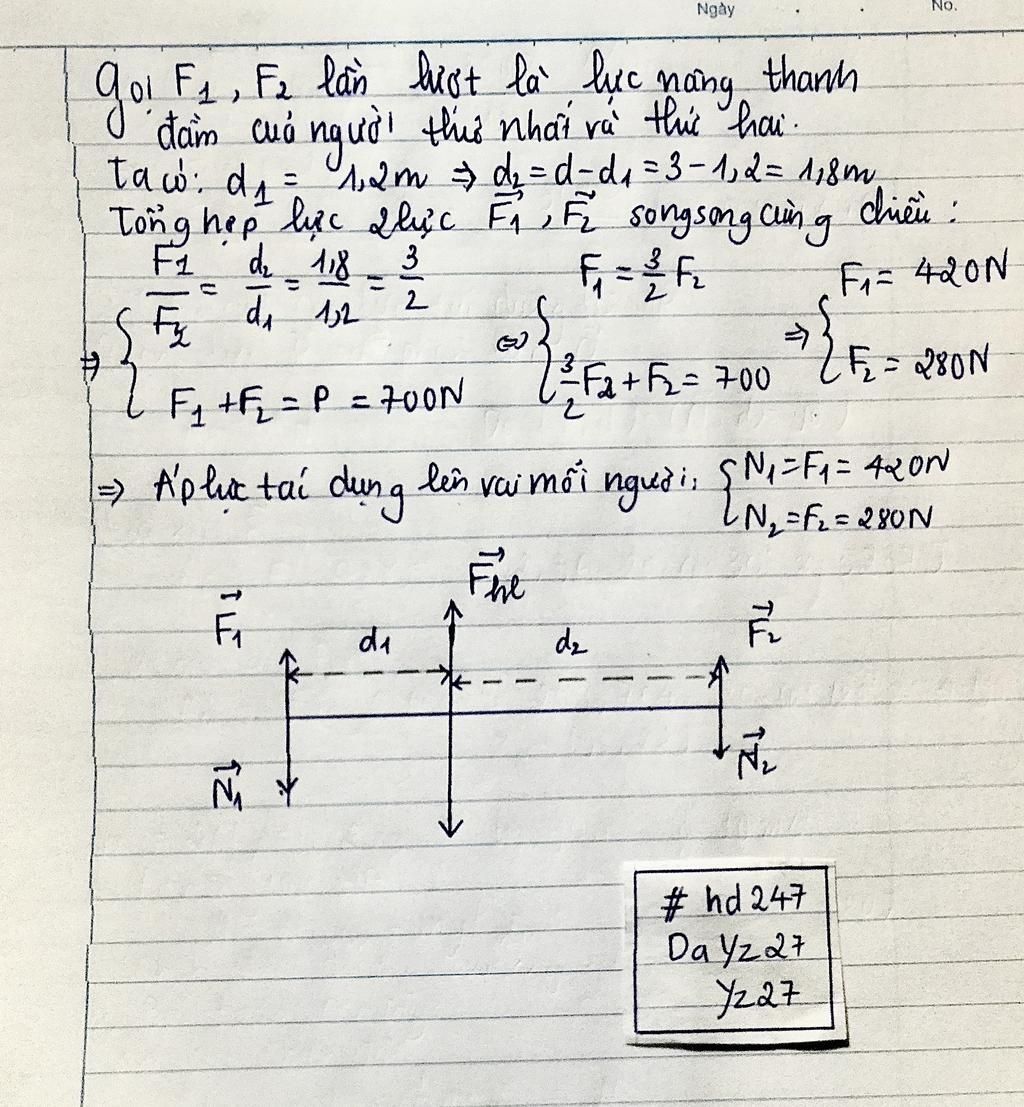 Ngày . . No.
Gọi F1, F2 lần lượt là lực nâng thanh
dầm cuả người thứ nhất và thứ hai.
Ta có: d1 = 1,2m ⇒ d2 = d-d1 = 3-1,2 = 1,8m
Tổng hợp lực 2 lực F⃗1, F⃗2 song song cùng chiều:
⇒ { F1/F2 = d2/d1 = 1,8/1,2 = 3/2 ⇔ { F1 = 3/2 F2 ⇒ { F1 = 420N
F1 + F2 = P = 700N 3/2 F2 + F2 = 700 F2 = 280N
⇒ Áp lực tác dụng lên vai mỗi người: { N1 = F1 = 420N
N2 = F2 = 280N
F⃗hl
F⃗1 d1 d2 F⃗2
N⃗1 N⃗2
# hd247
Da Yz27
Yz27